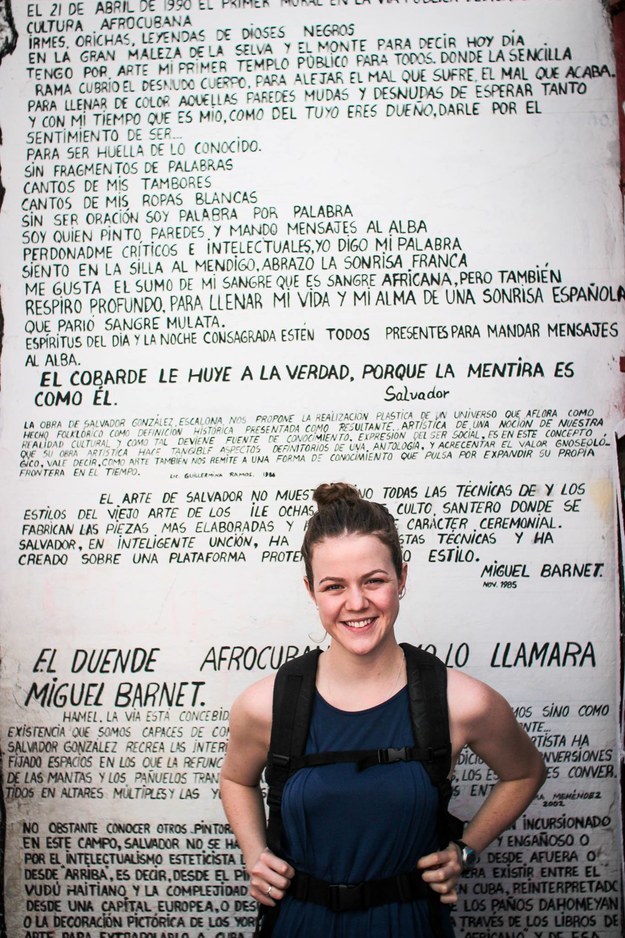 EL 21 DE ABRIL DE 1990 EL PRIMER MURAL EN LA VIA PUBLICA
CULTURA AFROCUBANA
IRMES, ORICHAS, LEYENDAS DE DIOSES NEGROS
EN LA GRAN MALEZA DE LA SELVA Y EL MONTE PARA DECIR HOY DIA
TENGO POR ARTE MI PRIMER TEMPLO PÚBLICO PARA TODOS. DONDE LA SENCILLA
RAMA CUBRIÓ EL DESNUDO CUERPO, PARA ALEJAR EL MAL QUE SUFRE, EL MAL QUE ACABA.
PARA LLENAR DE COLOR AQUELLAS PAREDES MUDAS Y DESNUDAS DE ESPERAR TANTO
Y CON MI TIEMPO QUE ES MIO, COMO DEL TUYO ERES DUEÑO, DARLE POR EL
SENTIMIENTO DE SER...
PARA SER HUELLA DE LO CONOCIDO.
SIN FRAGMENTOS DE PALABRAS
CANTOS DE MIS TAMBORES
CANTOS DE MIS ROPAS BLANCAS
SIN SER ORACIÓN SOY PALABRA POR PALABRA
SOY QUIEN PINTO PAREDES, Y MANDO MENSAJES AL ALBA
PERDONADME CRÍTICOS E INTELECTUALES, YO DIGO MI PALABRA
SIENTO EN LA SILLA AL MENDIGO, ABRAZO LA SONRISA FRANCA
ME GUSTA EL SUMO DE MI SANGRE QUE ES SANGRE AFRICANA, PERO TAMBIÉN
RESPIRO PROFUNDO, PARA LLENAR MI VIDA Y MI ALMA DE UNA SONRISA ESPAÑOLA
QUE PARIÓ SANGRE MULATA.
ESPÍRITUS DEL DIA Y LA NOCHE CONSAGRADA ESTÉN TODOS PRESENTES PARA MANDAR MENSAJES
AL ALBA.
EL COBARDE LE HUYE A LA VERDAD, PORQUE LA MENTIRA ES
COMO ÉL.
Salvador
LA OBRA DE SALVADOR GONZÁLEZ ESCALONA, NOS PROPONE LA REALIZACIÓN PLASTICA DE UN UNIVERSO QUE AFLORA COMO
HECHO FOLKLÓRICO COMO DEFINICIÓN HISTÓRICA PRESENTADA COMO RESULTANTE ARTÍSTICA DE UNA NOCIÓN DE NUESTRA
REALIDAD CULTURAL Y COMO TAL DEVIENE FUENTE DE CONOCIMIENTO. EXPRESIÓN DEL SER SOCIAL, ES EN ESTE CONCEPTO
QUE SU OBRA ARTÍSTICA HACE TANGIBLE ASPECTOS DEFINITORIOS DE UNA, ANTOLOGÍA, Y ACRECENTAR EL VALOR GNOSEOLÓ-
GICO, VALE DECIR, COMO ARTE TAMBIÉN NOS REMITE A UNA FORMA DE CONOCIMIENTO QUE PULSA POR EXPANDIR SU PROPIA
FRONTERA EN EL TIEMPO. LIC. GUILLERMINA RAMOS. 1986
EL ARTE DE SALVADOR NO MUEST NO TODAS LAS TÉCNICAS DE Y LOS
ESTILOS DEL VIEJO ARTE DE LOS ILE OCHAS CULTO, SANTERO DONDE SE
FABRICAN LAS PIEZAS MAS ELABORADAS Y CARÁCTER CEREMONIAL.
SALVADOR, EN INTELIGENTE UNCIÓN, HA STAS TÉCNICAS Y HA
CREADO SOBRE UNA PLATAFORMA PROTE ESTILO.
MIGUEL BARNET.
NOV. 1985
EL DUENDE AFROCUBA LO LLAMARA
MIGUEL BARNET.
HAMEL, LA VÍA ESTA CONCEBID MOS SINO COMO
EXISTENCIA QUE SOMOS CAPACES DE CON ANTE...
SALVADOR GONZÁLEZ RECREA LAS INTER TISTA HA
FIJADO ESPACIOS EN LOS QUE LA REFUNC DICIO NVERSIONES
DE LAS MANTAS Y LOS PAÑUELOS TRAN LOS ES CONVER
TIDOS EN ALTARES MÚLTIPLES Y LAS
MENÉNDEZ
2002
NO OBSTANTE CONOCER OTROS PINTOR N INCURSIONADO
EN ESTE CAMPO, SALVADOR NO SE HA Y ENGAÑOSO O
POR EL INTELECTUALISMO ESTETICISTA DESDE AFUERA O
DESDE "ARRIBA", ES DECIR, DESDE EL ERA EXISTIR ENTRE EL
VUDÚ HAITIANO Y LA COMPLEJIDAD EN CUBA, REINTERPRETADO
DESDE UNA CAPITAL EUROPEA, O DES LOS PAÑOS DAHOMEYAN
O LA DECORACIÓN PICTÓRICA DE LOS YOR A TRAVÉS DE LOS LIBROS DE